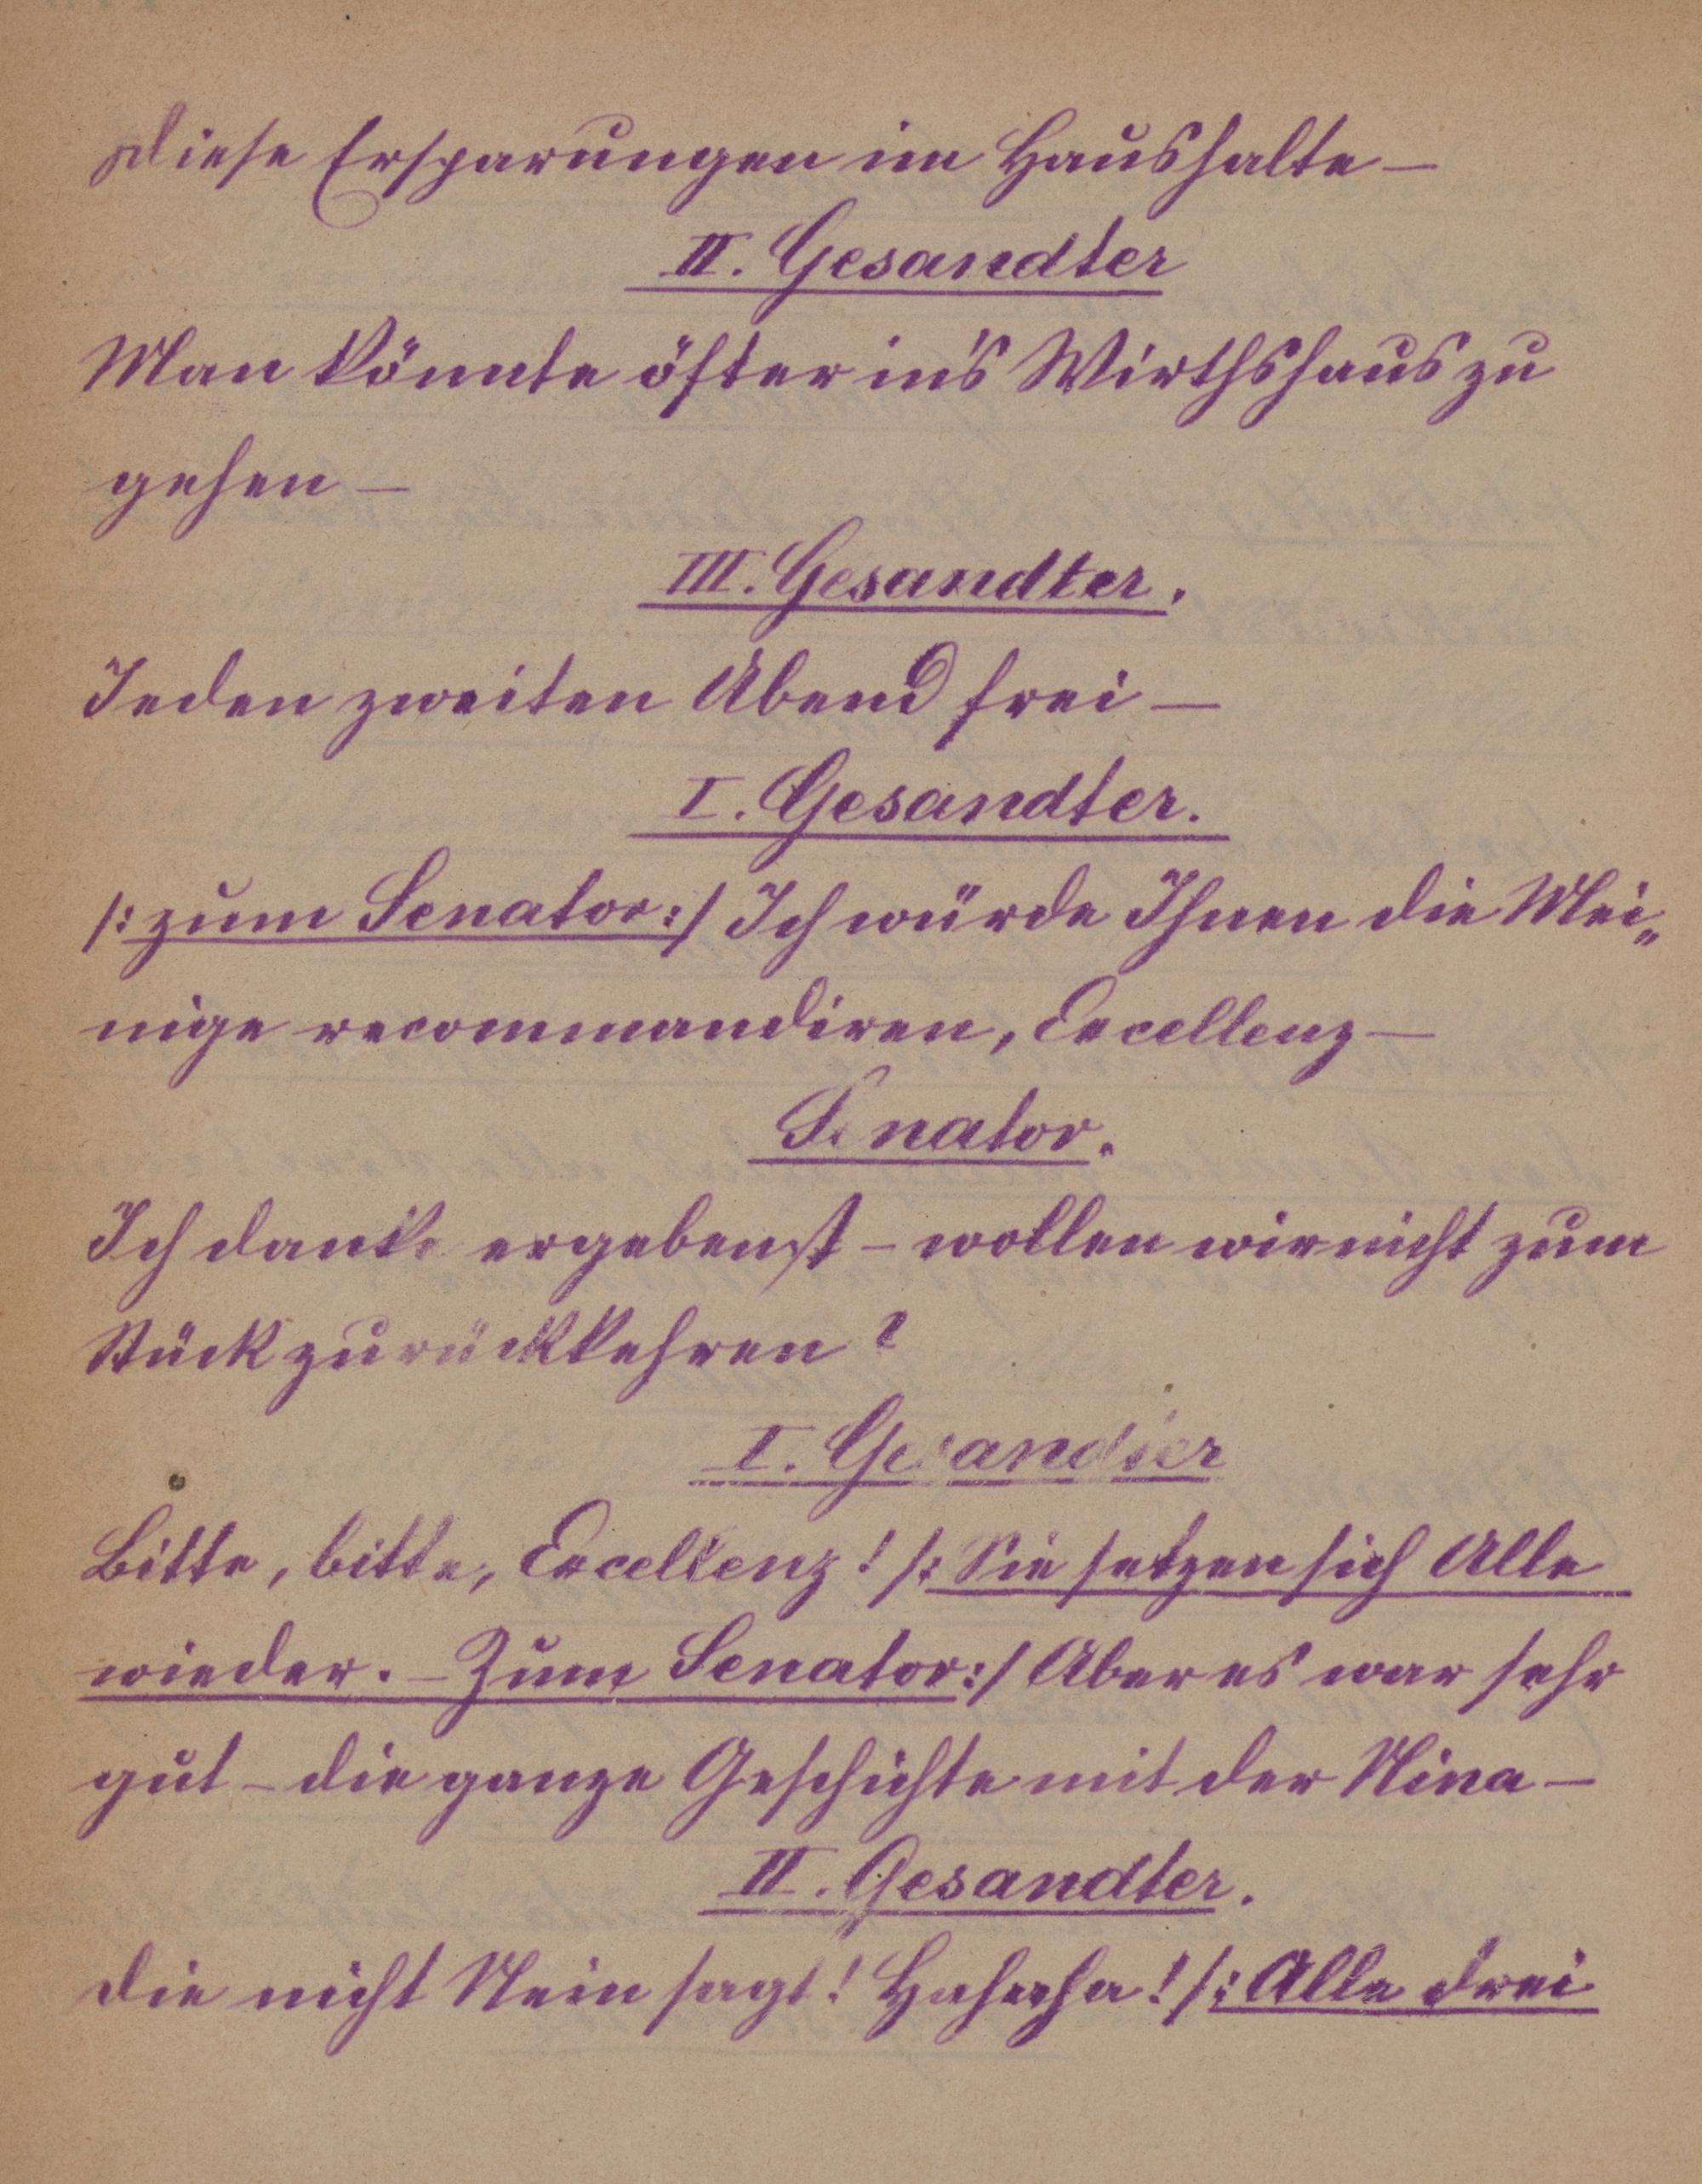 Diese Ersparungen im Haushalte —
II. Gesandter
Man könnte öfter in's Wirthshaus zu
gehen —
III. Gesandter.
Jeden zweiten Abend frei —
I. Gesandter.
/: zum Senator :/ Ich würde Ihnen die Mei„
nige recommandiren, Excellenz —
Senator.
Ich danke ergebenst – wollen wir nicht zum
Stück zurückkehren?
I. Gesandter
Bitte, bitte, Excellenz! /: Sie setzen sich Alle
wieder. – Zum Senator :/ Aber es war sehr
gut – die ganze Geschichte mit der Nina –
II. Gesandter.
die nicht Nein sagt! Hahaha! /: Alle drei